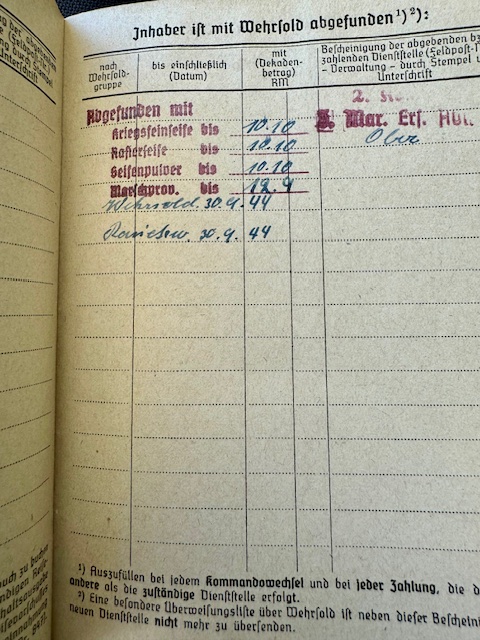 Inhaber ist mit Wehrsold abgefunden ¹) ²):
nach Wehrsold-gruppe
bis einschließlich (Datum)
mit (Dekaden-betrag) RM
Bescheinigung der abgebenden bz
zahlenden Dienststelle (Feldpost-
– Verwaltung – durch Stempel u
Unterschrift
Abgefunden mit
Kriegsfeinseife bis 10.10
Rasierseife bis 10.10
Seifenpulver bis 10.10
Marschprov. bis
2.
Mar. Ers. Abt.
Ober
Wehrsold. 30.9.44
30.9.44
¹) Auszufüllen bei jedem Kommandowechsel und bei jeder Zahlung, die d
andere als die zuständige Dienststelle erfolgt.
²) Eine besondere Überweisungsliste über Wehrsold ist neben dieser Bescheini
neuen Dienststelle nicht mehr zu übersenden.